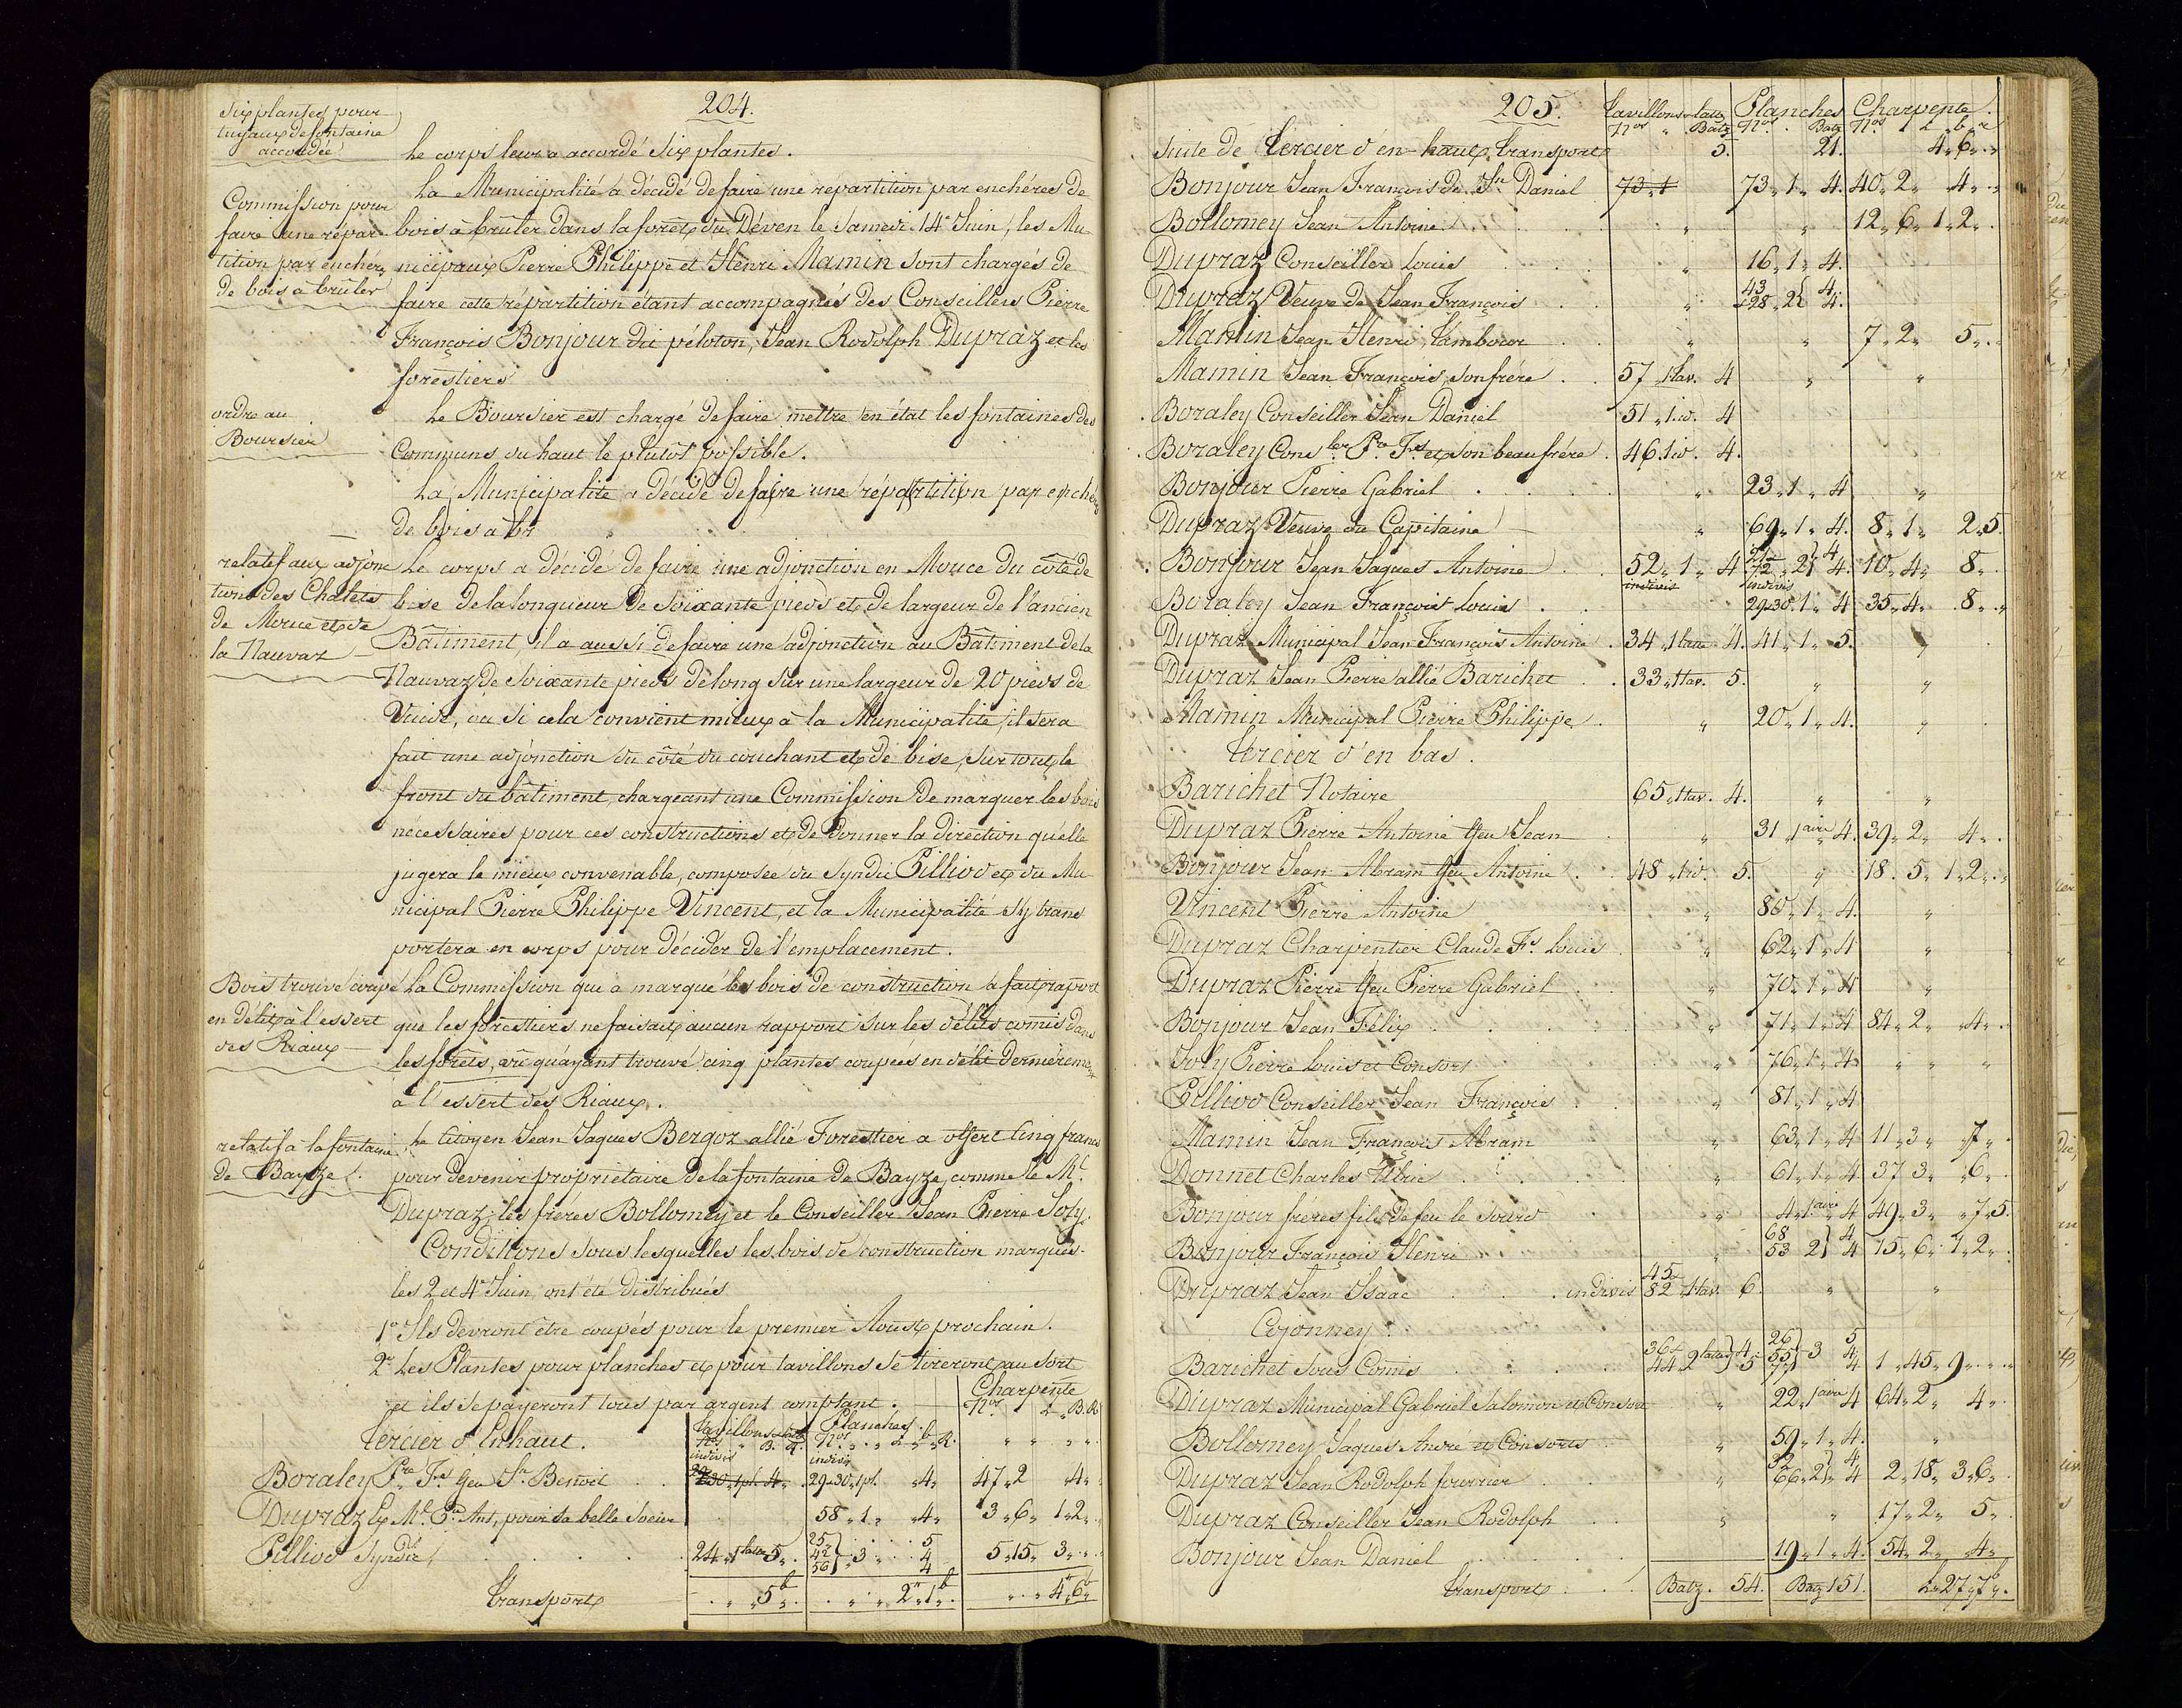 204.
Six plantes pour
tuyaux de fontaine
accordée
Le corps leur a accordé Six plantes.
Commission pour
faire une répar-
tition par enchère
de bois à brûler
La Municipalité à décidé de faire une repartition par enchéres de
bois à brûler dans la forêt du Déven le Samedi 14e Juin, les Mu-
nicipaux Pierre Philippe et Henri Mamin sont chargés de
faire cette répartition étant accompagnés des Conseillers Pierre
François Bonjour dit péloton, Jean Rodolph Dupraz et les
forestiers
ordre au
Boursier
Le Boursier est chargé de faire mettre en état les fontaines des
Communs du haut le plutôt possible.
La Municipalité a décidé de faire une répartition par enchère
de bois à br
relatif aux adjonc-
tions des Chalets
de Mouce et de
la Nauvaz
Le corps a décidé de faire une adjonction en Mouce du côté de
bise de la longueur de Soixante pieds et de largeur de l'ancien
Bâtiment, il a aussi de faire une adjonction au Bâtiment de la
Nauvaz de Soixante pieds de long sur une largeur de 20 pieds de
Vuide, ou si cela convient mieux à la Municipalité, il sera
fait une adjonction du côté du couchant et de bise, sur tout le
front du bâtiment, chargeant une Commission de marquer les bois
nécessaires pour ces constructions et de donner la direction qu'elle
jugera le mieux convenable, composée du Syndic Pilliod et du Mu-
nicipal Pierre Philippe Vincent, et la Municipalité s'y trans
portera en corps pour décider de l'emplacement.
Bois trouvé coupé
en délit à l'essert
des Riaux
La Commission qui a marqué les bois de construction a fait raport
que les forestiers ne faisait aucun rapport sur les délits comis dans
les forêts, vû qu'ayant trouvé cinq plantes coupées en délit dernièrement
à l'essert des Riaux.
relatif à la fontaine
de Bayze
Le Citoyen Jean Jaques Bergoz allié Forestier a offert Cinq francs
pour devenir propriétaire de la fontaine de Bayze, comme le Ml.
Dupraz, les frères Bollomey et le Conseiller Jean Pierre Joly.
Conditions sous lesquelles les bois de construction marqués
les 2 et 4e Juin, ont été distribués
1o Ils devront être coupés pour le premier Aoust prochain.
2o Les Plantes pour planches et pour tavillons se tireront au sort
et ils se payeront tous par argent comptant.
Charpente
Nos. L. B. R.
Tercier d'Enhaut. Tavillons Planches.
Nos B. R. Nos L. b. R.
indivis indivis
Boraley Pre. Fs. feu Sr. Benoit 29 30. 1 pl. 4. 29. 30. 1 pl. 4. 47. 2 4.
Dupraz Ml. Pre Ant, pour sa belle Soeur 58. 1. 4. 3. 6. 1. 2.
Pilliod Syndic 24. 1 latte 5. 25 42 56 } 3 5 4 4 5. 15. 3.
Transport 5b 2. 1b 4. 6b
205. Tavillons & latte Planches Charpente.
Nos Batz Nos. Batz Nos L. b. r
Suite de Tercier d'en-haut, transport 5. 21. 4. 6.
Bonjour Jean François du Sr. Daniel 73. 1 73. 1. 4. 40. 2. 4.
Bollomey Jean Antoine 12. 6. 1. 2.
Dupraz Conseiller Louis 16. 1. 4.
Dupraz Veuve de Jean François 43 28. 2 } 4 4.
Mamin Jean Henri, Tambour 7. 2. 5.
Mamin Jean François, son frére 57. 1 tav. 4
Boraley Conseiller Jean Daniel 51. 1. id. 4
Boraley Consler Pre Fs et son beaufrére 46. 1 id. 4.
Bonjour Pierre Gabriel 23. 1. 4
Dupraz Veuve du Capitaine 69. 1. 4. 8. 1. 2. 5
Bonjour Jean Jaques Antoine 52. 1. 4 72. 2 } 4 4. 10. 4. 8.
indivis indivis
Boraley Jean François Louis 29. 30. 1. 4 35. 4. 8.
Dupraz Municipal Jean François Antoine 34. 1 latte 4. 41. 1. 5.
Dupraz Jean Pierre allié Barichet 33. 1 tav. 5.
Mamin Municipal Pierre Philippe 20. 1. 4.
Tercier d'en bas.
Barichet Notaire 65. 1 tav. 4.
Dupraz Pierre Antoine feu Jean 31 1 aire 4. 39. 2. 4.
Bonjour Jean Abram feu Antoine 48. 1 id. 5. 18. 5. 1. 2.
Vincent Pierre Antoine 80. 1. 4.
Dupraz Charpentier Claude Fs. Louis 62. 1. 4
Dupraz Pierre feu Pierre Gabriel 70. 1. 4
Bonjour Jean Félix 71. 1. 4 84. 2. 4.
Joly Pierre Louis et Consort 76. 1. 4
Pilliod Conseiller Jean François 81. 1. 4
Mamin Jean François Abram 63. 1. 4 11. 3. 7.
Donnet Charles Ulric 61. 1. 4 37 3. 6.
Bonjour fréres fils de feu le sourd 4. 1 aire 4 49. 3. 7. 5.
Bonjour François Henri 68 53 2 } 4 4 15. 6. 1. 2.
Dupraz Jean Isaac indivis 45 82 1 tav. 6.
Cojonney
Barichet sous Comis 36 44 2 lattes } 4 5 26 55 77 } 3 5 4 4 1. 45. 9.
Dupraz Municipal Gabriel Salomon et Consort 22. 1 aire 4 64. 2. 4.
Bollomey Jaques Andre et Consorts 59. 1. 4.
Dupraz Jean Rodolph fourrier 32 66. 2 } 4 4 2. 18. 3. 6.
Dupraz Conseiller Jean Rodolph 17. 2. 5.
Bonjour Jean Daniel 19. 1. 4. 54. 2. 4.
transport Batz. 54. Batz 151. L. 27. 7.